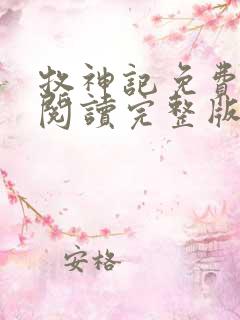 牧神記免費
閱讀完整版
安格